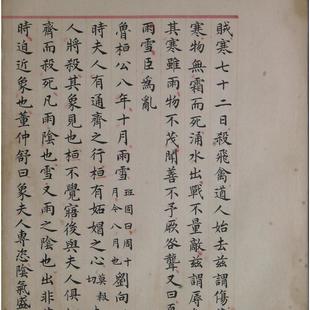 賊寒七十二日殺飛禽道人始去茲謂傷
寒物無霜而死涌水出戰不量敵茲謂辱
其寒雖雨物不茂聞善不予厥咎聾又曰
雨雪臣為亂
魯桓公八年十月雨雪班固曰周十月今八月也劉向
時夫人有通齊之行桓有妬媢之心莫報切
人將殺其象見也桓不覺寤後與夫人俱
齊而殺死凡雨陰也雪又雨之陰也出非
時迫近象也董仲舒曰象夫人專恣陰氣盛